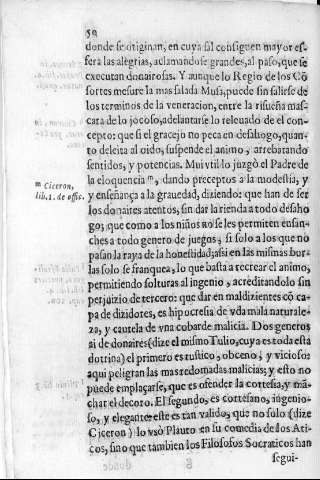 50
donde se originan, en cuya sal consiguen mayor es-
fera las alegrias, aclamandose grandes, al paso, que se
executan donairosas. Y aunque lo Regio de los Cō
sortes mesure la mas salada Musa, puede sin salirse de
los terminos de la veneracion, entre la risueña mas-
cara de lo jocoso, adelantarse lo releuado de el con-
cepto: que si el gracejo no peca en desahogo, quan-
to deleita al oido, suspende el animo, arrebatando
sentidos, y potencias. Mui vtil lo juzgò el Padre de
la eloquencia m, dando preceptos a la modestia, y
m Ciceron,
lib. 1. de offic.
y enseñança a la grauedad, diziendo: que han de ser
los donaires atentos, sin dar la rienda a todo desaho
go; que como a los niños no se les permiten ensan-
ches a todo genero de juegos, si solo a los que no
pasan la raya de la honestidad; asi en las mismas bur-
las solo se franquea, lo que basta a recrear el animo,
permitiendo solturas al ingenio, acreditandolo sin
perjuizio de tercero: que dar en maldizientes cō ca-
pa de dizidores, es hipocresia de vna mala naturale-
za, y cautela de vna cobarde malicia. Dos generos
ai de donaires (dize el mismo Tulio, cuya es toda esta
dotrina) el primero es rustico, obceno, y vicioso:
aqui peligran las mas redomadas malicias; y esto no
puede emplaçarse, que es ofender la cortesia, y mā-
char el decoro. El segundo, es cortesano, ingenio-
so, y elegante: este es tan valido, que no solo (dize
Ciceron) lo vsò Plauto en su comedia de los Ati-
cos, sino que tambien los Filosofos Socraticos han
segui-